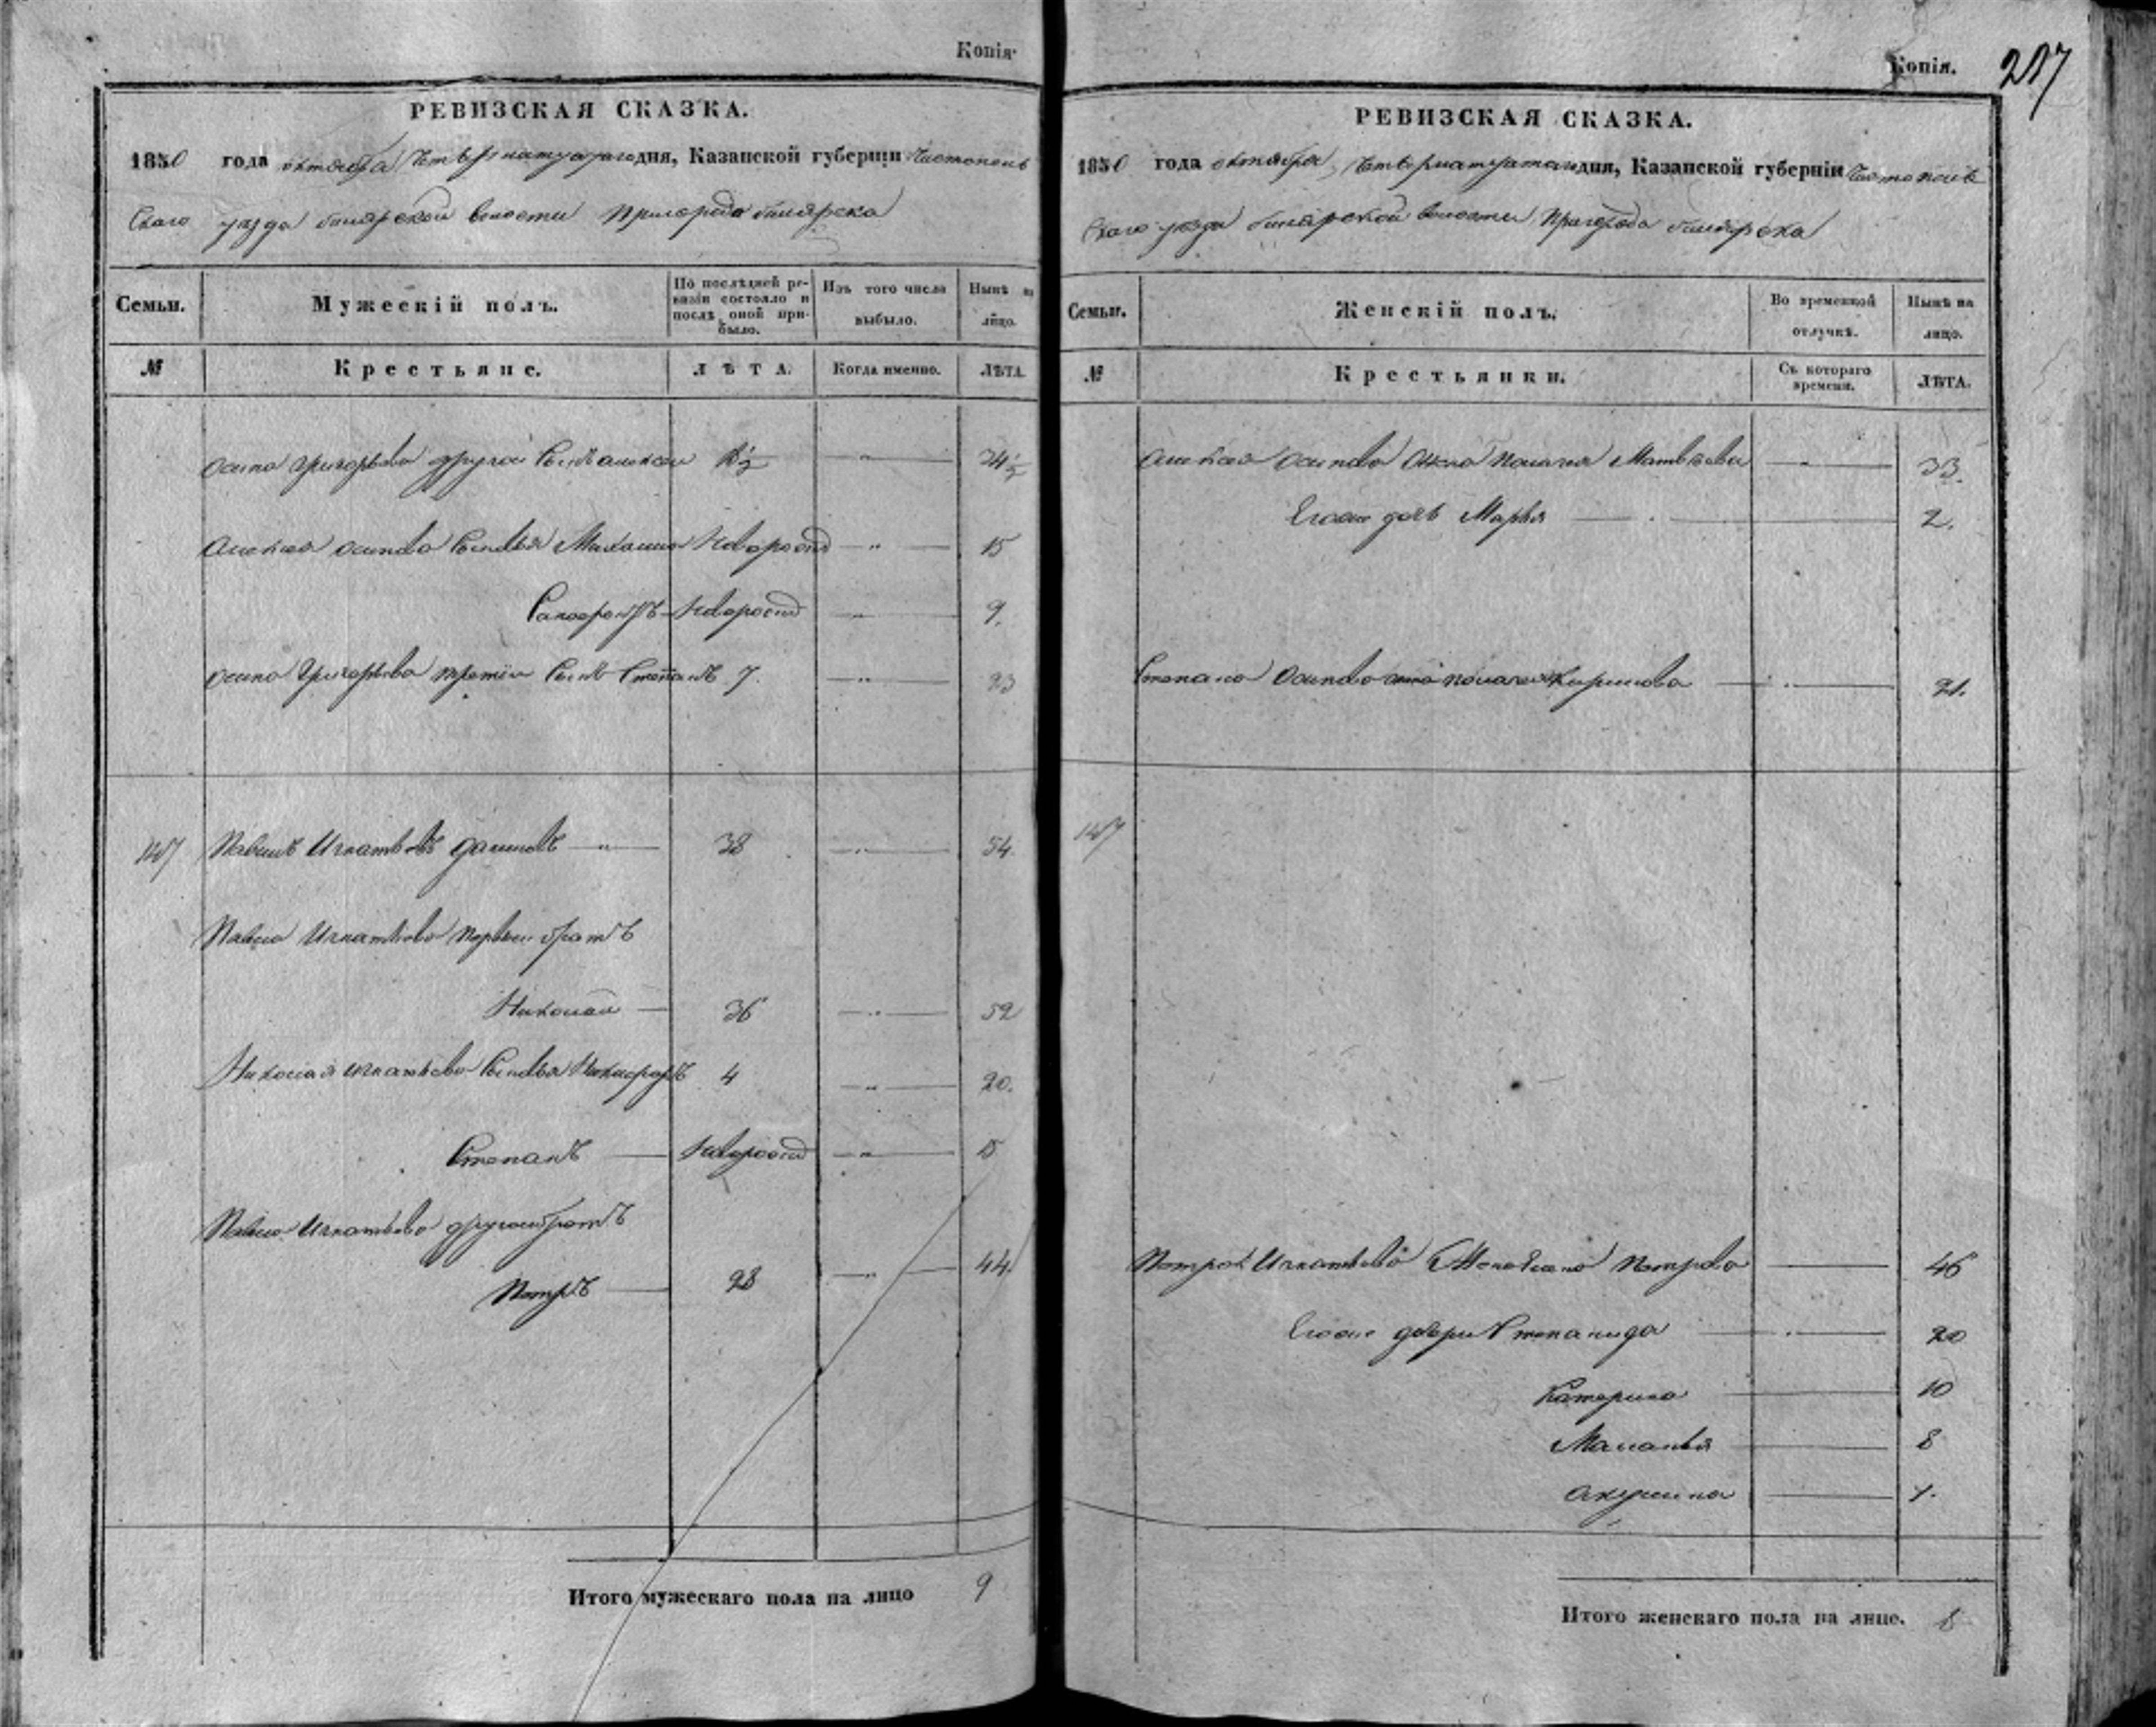 Копія
РЕВИЗСКАЯ СКАЗКА.
1850 года октября четырнатцатаго дня, Казанской губерніи Чистополь
скаго уезда билярской волости Пригорода билярска
Семьи. Мужескій полъ. По послѣдней ревизіи состояло и послѣ оной прибыло. Изъ того числа выбыло. Нынѣ на лицо.
№ Крестьяне. ЛѢТА. Когда именно. ЛѢТА.
Осипа Григорьева другой Сынъ Алексей 24½
Алексея Осипова Сыновья Михаило Новорожд 15
Новорожд 9.
Осипа Григорьева третій Сынъ Степанъ 7. 23
147 Павелъ Игнатьевъ 38 54.
Павла Игнатьева первый братъ
Николай 36 52
Николая Игнатьева Сыновья Никифоръ 4 20.
Степанъ Новорожд 15
Павла Игнатьева другой братъ
Петръ 28 44
Итого мужескаго пола на лицо 9
Копія. 217
РЕВИЗСКАЯ СКАЗКА.
1850 года октября четырнатцатаго дня, Казанской губерніи Чистополь
скаго уезда билярской волости Пригорода билярска
Семьи. Женскій полъ. Во временной отлучкѣ. Нынѣ на лицо.
№ Крестьянки. Съ котораго времени. ЛѢТА.
Алексея Осипова жена Пелагея Матвеева 33.
Его дочь Марья 2.
Степана Осипова жена Пелагея Кирилова 21.
147
Петра Игнатьева жена Петрова 46
дочери Степанида 20
Катерина 10
Маланья 8
Акулина
Итого женскаго пола на лицо. 8